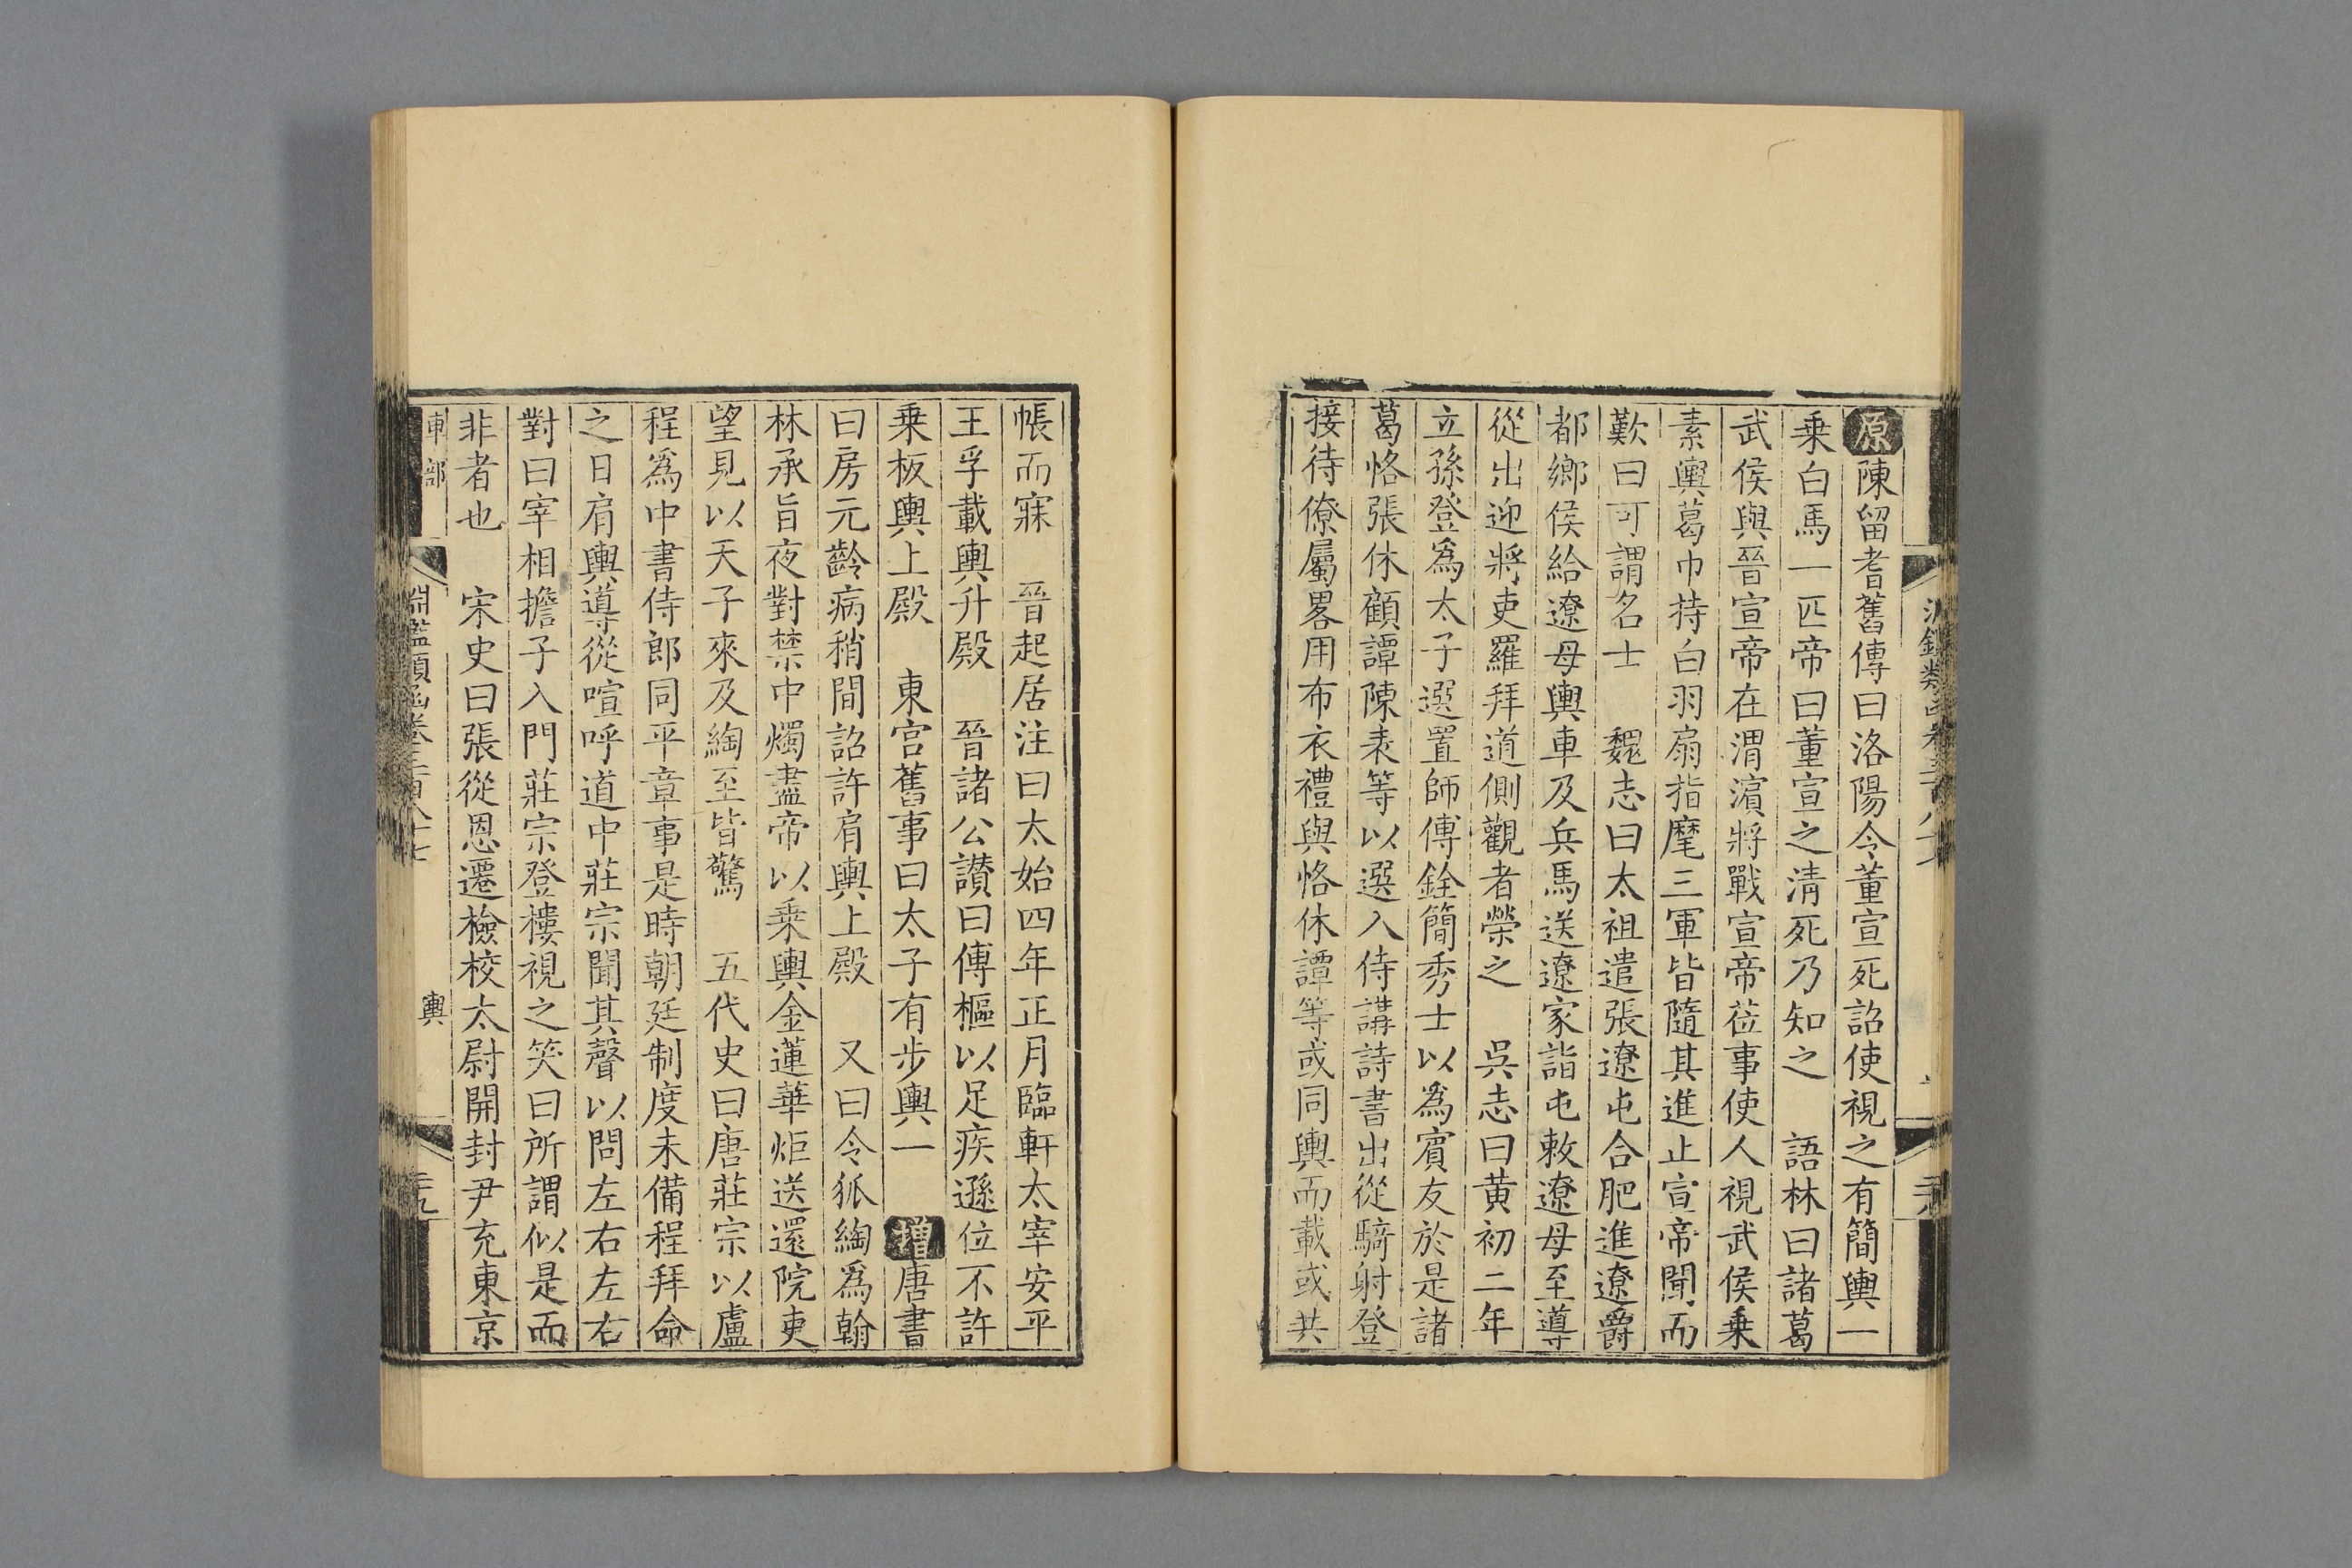 原陳留耆舊傳曰洛陽令董宣死詔使視之有簡輿一
乗白馬一匹帝曰董宣之清死乃知之　語林曰諸葛
武侯與晉宣帝在渭濵將戰宣帝莅事使人視武侯乗
素輿葛巾持白羽扇指麾三軍皆隨其進止宣帝聞而
歎曰可謂名士　魏志曰太祖遣張遼屯合肥進遼爵
都鄉侯給遼母輿車及兵馬送遼家詣屯敕遼母至導
從出迎將吏羅拜道側觀者榮之　吳志曰黄初二年
立孫登爲太子選置師傅銓簡秀士以爲賓友於是諸
葛恪張休顧譚陳表等以選入侍講詩書出從騎射登
接待僚屬畧用布衣禮與恪休譚等或同輿而載或共
帳而寐　晉起居注曰太始四年正月臨軒太宰安平
王孚載輿升殿　晉諸公讃曰傅樞以足疾遜位不許
乗板輿上殿　東宮舊事曰太子有步輿一　增唐書
曰房元齡病稍間詔許肩輿上殿　又曰令狐綯爲翰
林承旨夜對禁中燭盡帝以乗輿金蓮華炬送還院吏
望見以天子來及綯至皆驚　五代史曰唐莊宗以盧
程爲中書侍郎同平章事是時朝廷制度未備程拜命
之日肩輿導從喧呼道中莊宗聞其聲以問左右左右
對曰宰相擔子入門莊宗登樓視之笑曰所謂似是而
非者也　宋史曰張從恩遷檢校太尉開封尹充東京
車部　淵鑑類函卷三百八十七　輿